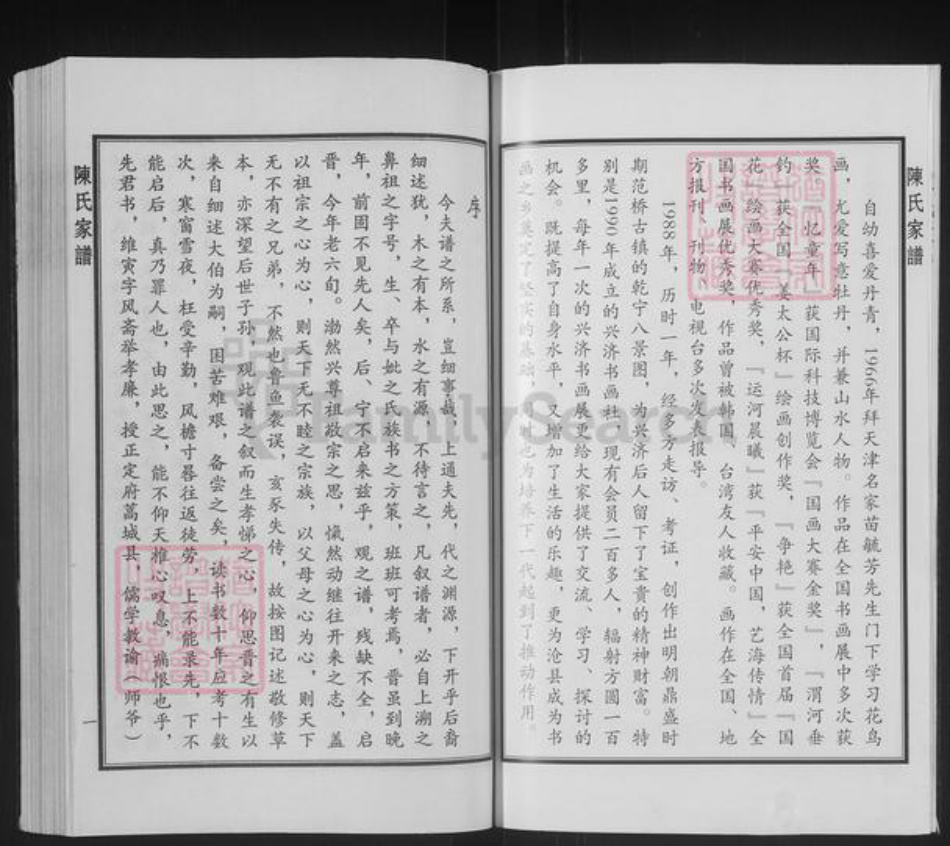 陳氏家譜
自幼喜爱丹青，1966年拜天津名家苗毓芳先生门下学习花鸟
画，尤爱写意牡丹，并兼山水人物。作品在全国书画展中多次获
奖，「忆童年」获国际科技博览会「国画大赛金奖」，「渭河垂
钓」获全国「姜太公杯」绘画创作奖，「争艳」获全国首届「国
花」绘画大赛优秀奖，「运河晨曦」获「平安中国，艺海传情」全
国书画展优秀奖，作品曾被韩国、台湾友人收藏。画作在全国、地
方报刊、刊物、电视台多次发表报导。
1988年，历时一年，经多方走访、考证，创作出明朝鼎盛时
期范桥古镇的乾宁八景图，为兴济后人留下了宝贵的精神财富。特
别是1990年成立的兴济书画社，现有会员二百多人，辐射方圆一百
多里，每年一次的兴济书画展更给大家提供了交流、学习、探讨的
机会。既提高了自身水平，又增加了生活的乐趣，更为沧县成为书
画之乡奠定了坚实的基础，同时也为培养下一代起到了推动作用。
序
今夫谱之所系，岂细事哉，上通夫先，代之渊源，下开乎后裔
细述犹，木之有本，水之有源，不待言之，凡叙谱者，必自上溯之
鼻祖之字号，生、卒与妣之氏族书之方策，班班可考焉，晋虽到晚
年，前固不见先人矣，后、宁不启来兹乎，观之谱，残缺不全，启
晋，今年老六旬。渤然兴尊祖敬宗之思，慨然动继往开来之志，盖
以祖宗之心为心，则天下无不睦之宗族，以父母之心为心，则天下
无不有之兄弟，不然也鲁鱼袭误，亥豕失传，故按图记述敬修草
本，亦深望后世子孙，观此谱之叙而生孝悌之心，仰思晋之有生以
来自细述大伯为嗣，困苦难艰，备尝之矣，读书数十年应考十数
次，寒窗雪夜，枉受辛勤，风檐寸晷往返徒劳，上不能录先，下不
能启后，真乃罪人也，由此思之，能不仰天椎心叹息，痛恨也乎，
先君书，维寅字风斋举孝廉，授正定府蒿城县，儒学教谕（师爷）
陳氏家譜
一
FamilySearch